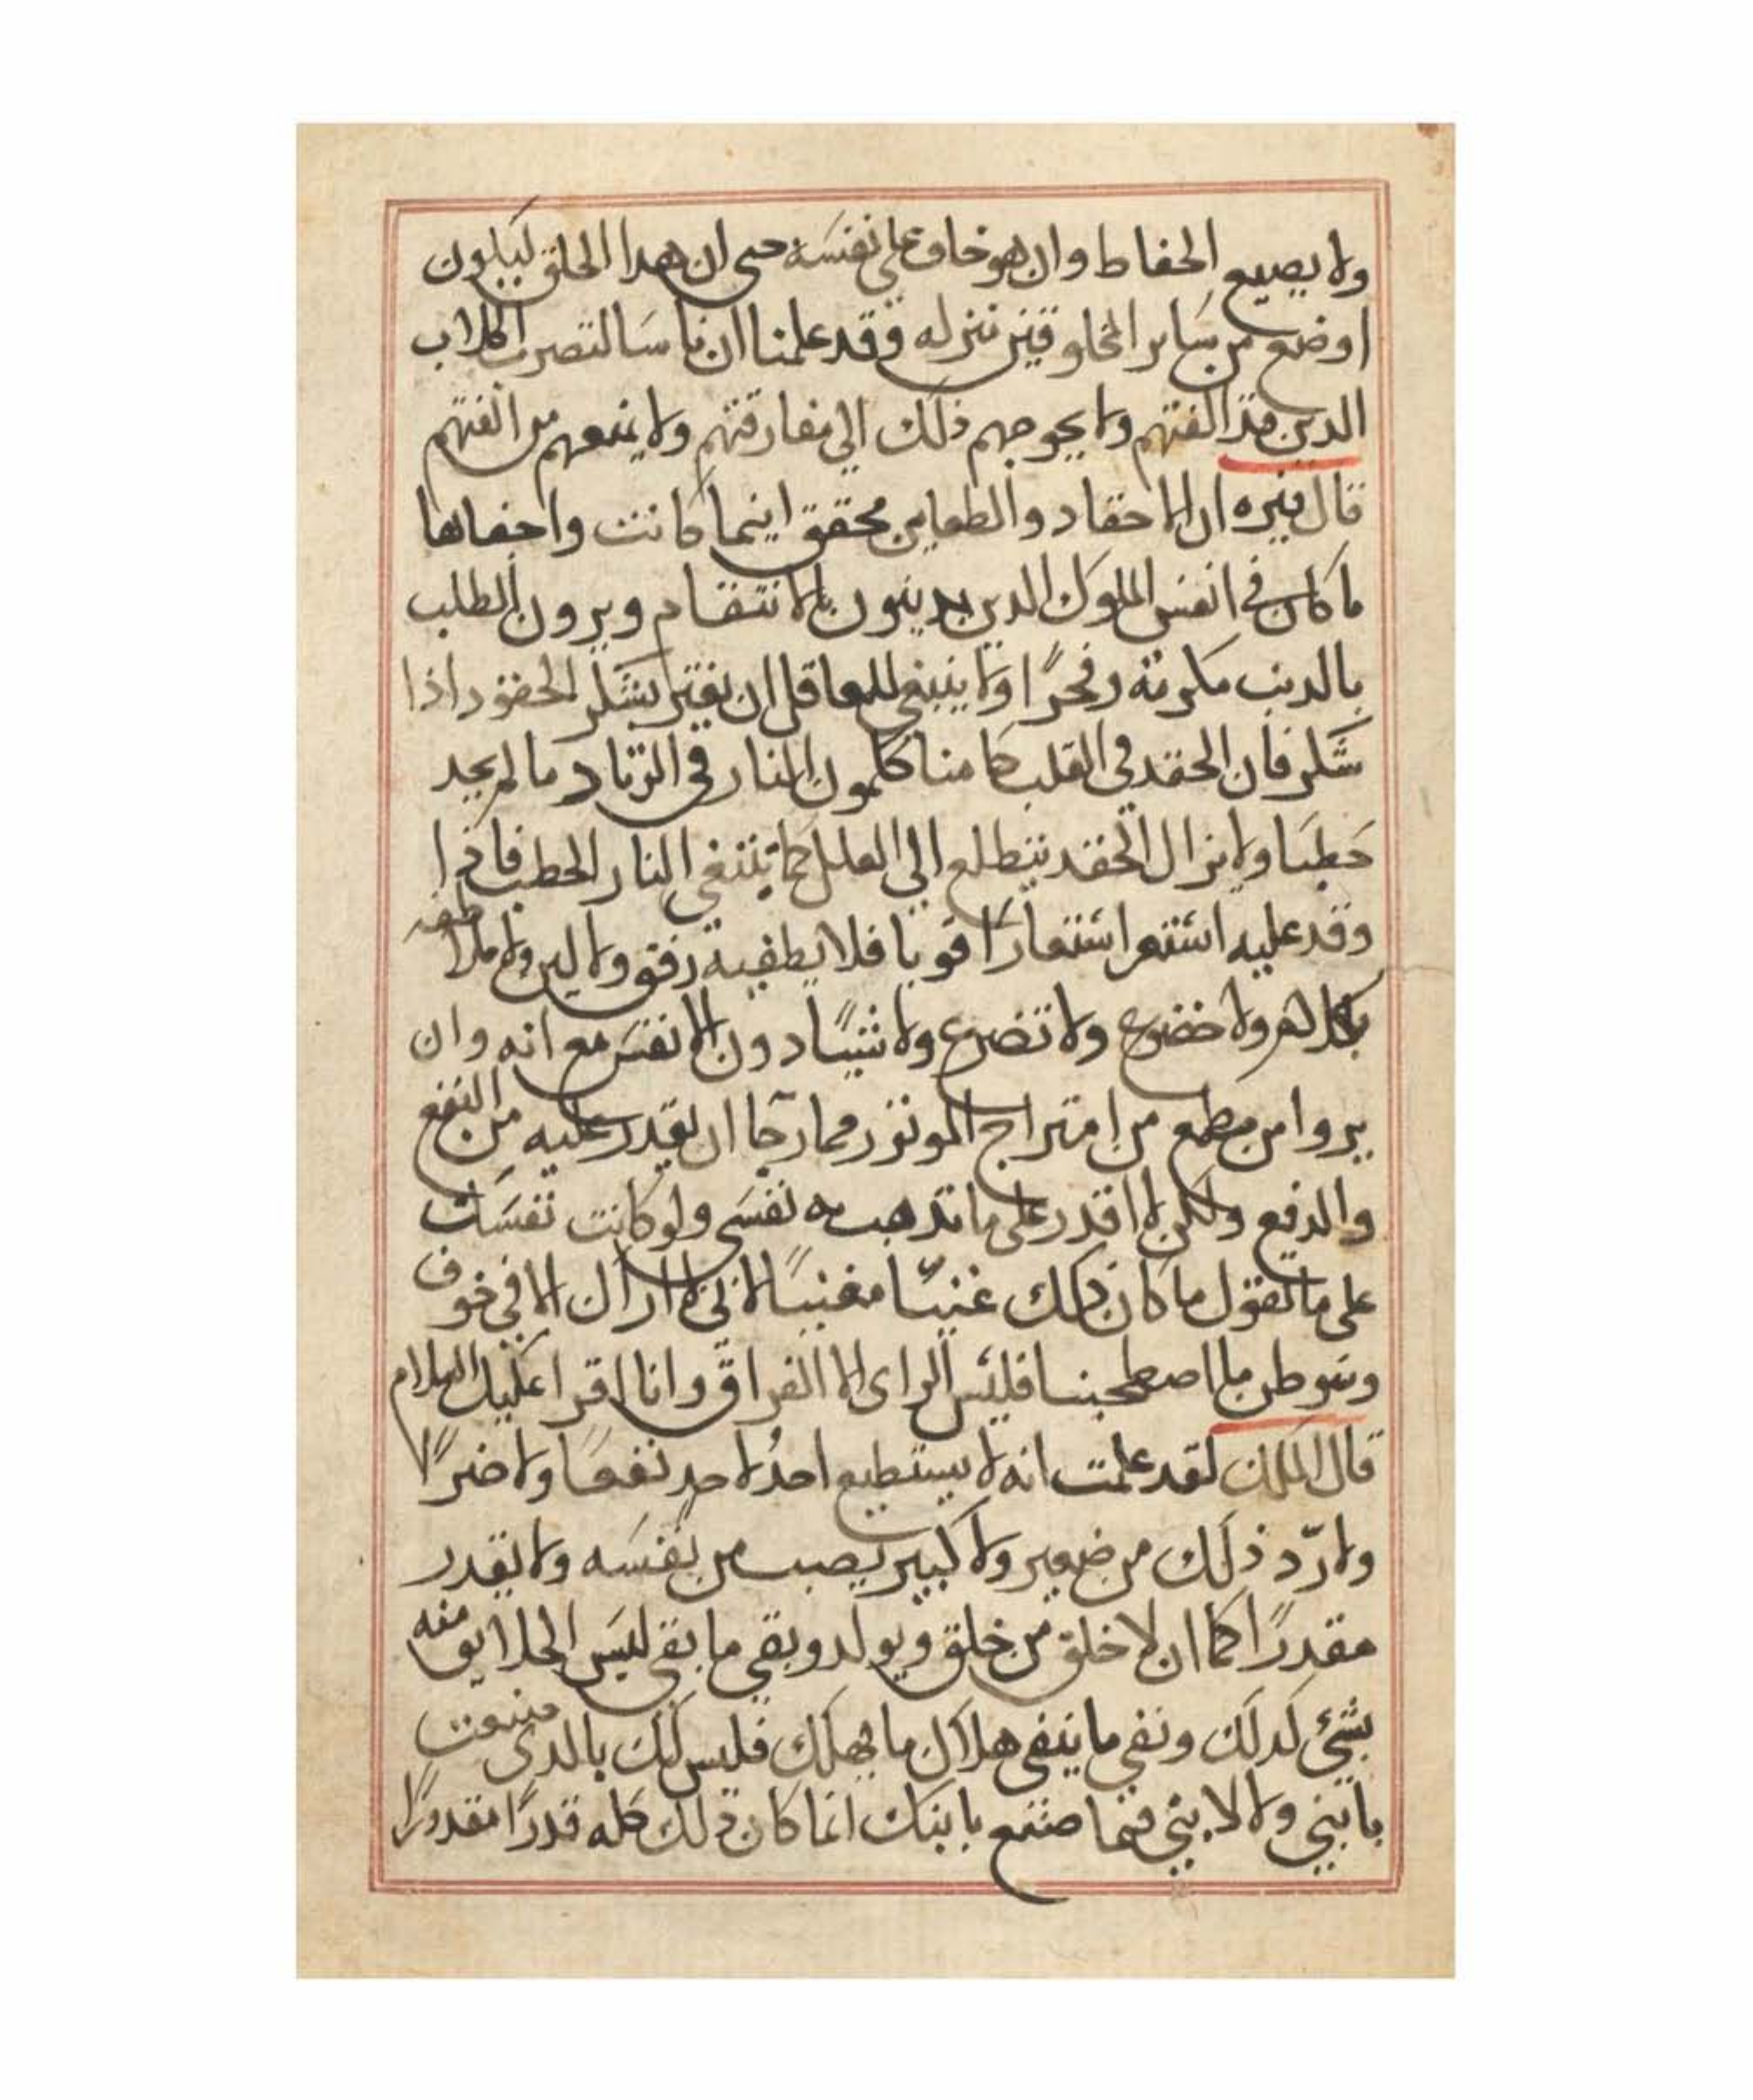 ولا يصيع الحفاط وان هو خاف على نفسه حتى ان هدا الخلق ليكون
اوضع من ساير المخلوقين منزله وقد علمنا ان ناسا لتصرب الكلاب
الدين قد الفتهم ولا يحوجهم ذلك الي مفارقتهم ولا يمنعهم من الفتهم
قال فنره ان الاحقاد والطعاين محقق اينما كانت واحفاها
ما كان في انفس الملوك الدين يدينون بالانتقام ويرون الطلب
بالدنب مكرمة وفخرًا ولا ينبغي للعاقل ان يغتر بسكر الحقود اذا
سكر فان الحقد في القلب كامنا ككمون النار في الزناد ما لم يجد
حطبا ولا يزال الحقد يتطلع الي العلل كما تبتغي النار الحطب فاذا
وقد عليه استعر استعارًا قويا فلا يطفيه رفق ولا لين ولا ملاطفه
بكلام ولا خضوع ولا تضرع ولا شيًا دون الانفس مع انه وان
يروا من مطمع من امتراج الموتور مما رجا ان يقدر عليه من النفع
والدفع ولكن لا اقدر على ما تذهب به نفسي ولو كانت نفسك
على ما تقول ما كان ذلك غنيًا مغنيًا لاني لا ازال الا في خوف
وسوطن ما اصطحبنا فليس الراي الا الفراق وانا اقرا عليك السلام
قال الملك لقد علمت انه لا يستطيع احدًا لاحدٍ نفعا ولا ضرًا
ولا ردّ ذلك من صغير ولا كبير يصب من نفسه ولا يقدر
مقدرًا كما ان لا خلق من خلق ويولد وبقي ما بقي ليس الخلايق منه
بشيء كدلك ونفي ما ينفى هلاك ما يهلك فليس لك بالدي صنعت
بابني ولا لابني فيما صنع بابنك انما كان ذلك كله قدرًا مقدورًا